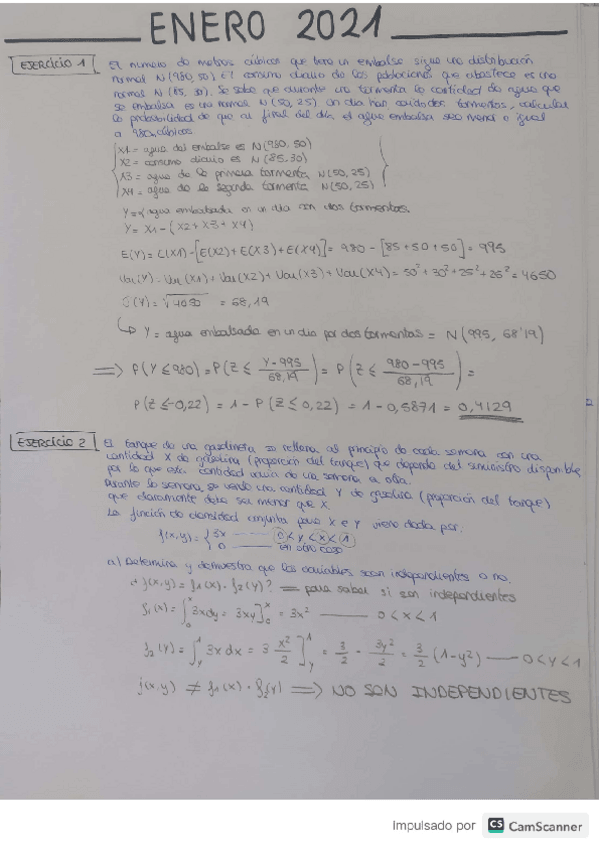 ENERO 2021
EJERCICIO 1 El número de metros cúbicos que tiene un embalse sigue una distribución
normal N(980,50). El consumo diario de las poblaciones que abastece es una
normal N(85,30). Se sabe que durante una tormenta la cantidad de agua que
se embalsa es una normal N(50,25). Un día han caído dos tormentas, calcular
la probabilidad de que al final del día, el agua embalsa sea menor o igual
a 980 cúbicos
X1 = agua del embalse es N(980,50)
X2 = consumo diario es N(85,30)
X3 = agua de la primera tormenta N(50,25)
X4 = agua de la segunda tormenta N(50,25)
Y = agua embalsada en un día con dos tormentas.
Y = X1 - (X2 + X3 + X4)
E(Y) = E(X1) - [E(X2) + E(X3) + E(X4)] = 980 - [85 + 50 + 50] = 995
Var(Y) = Var(X1) + Var(X2) + Var(X3) + Var(X4) = 50² + 30² + 25² + 25² = 4650
σ(Y) = √4650 = 68,19
↳ Y = agua embalsada en un día por dos tormentas = N(995, 68'19)
⟹ P(Y ≤ 980) = P(Z ≤ (Y - 995)/68,19) = P(Z ≤ (980 - 995)/68,19) =
P(Z ≤ -0,22) = 1 - P(Z ≤ 0,22) = 1 - 0,5871 = 0,4129
EJERCICIO 2 El tanque de una gasolinera se rellena al principio de cada semana con una
cantidad X de gasolina (proporción del tanque) que depende del suministro disponible
por lo que esta cantidad varía de una semana a otra.
Durante la semana, se vende una cantidad Y de gasolina (proporción del tanque)
que claramente debe ser menor que X.
La función de densidad conjunta para X e Y viene dada por:
f(x,y) = { 3x 0 < y < x < 1
0 en otro caso
a) Determina y demuestra que las variables sean independientes o no.
¿f(x,y) = f1(x) · f2(y)? = para saber si son independientes
f1(x) = ∫₀ˣ 3x dy = 3xy]₀ˣ = 3x² 0 < x < 1
f2(y) = ∫ᵧ¹ 3x dx = 3 x²/2]ᵧ¹ = 3/2 - 3y²/2 = 3/2 (1 - y²) 0 < y < 1
f(x,y) ≠ f1(x) · f2(y) ⟹ NO SON INDEPENDIENTES
Impulsado por CS CamScanner